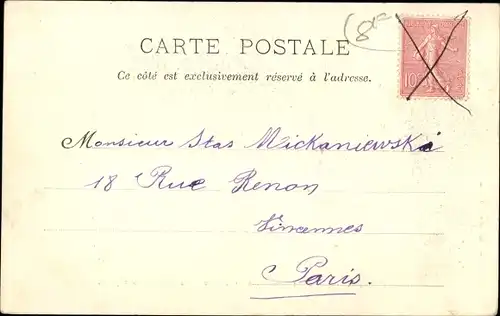 8
CARTE POSTALE
10c
Ce côté est exclusivement réservé à l'adresse.
Monsieur Stas Mickaniewski
18 Rue Renon
Vincennes
Paris.